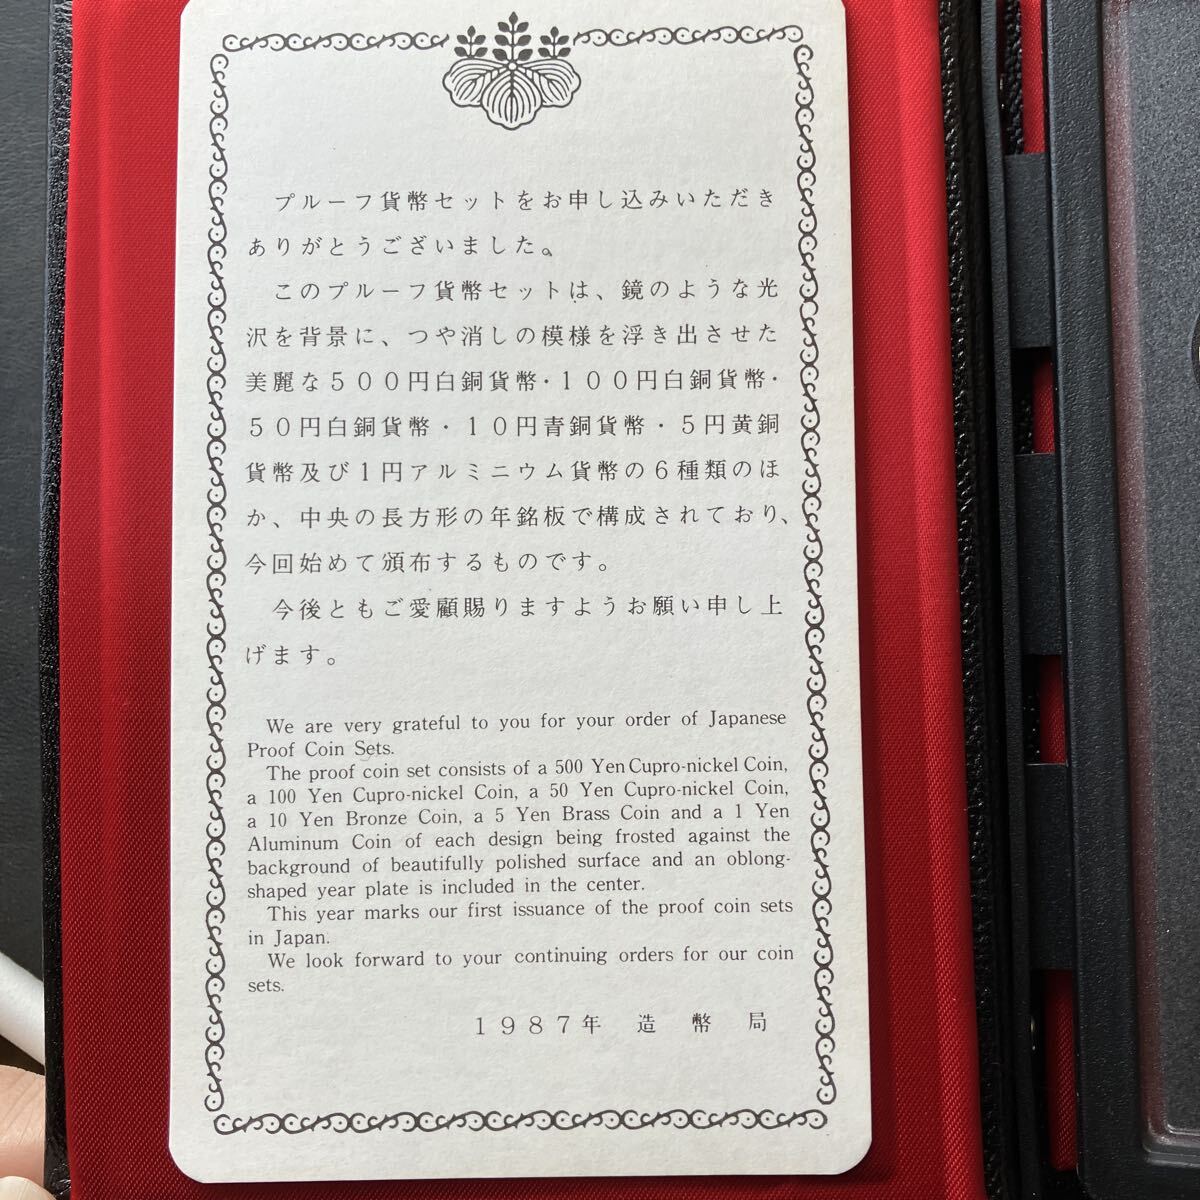 プルーフ貨幣セットをお申し込みいただき
ありがとうございました。
このプルーフ貨幣セットは、鏡のような光
沢を背景に、つや消しの模様を浮き出させた
美麗な500円白銅貨幣・100円白銅貨幣・
50円白銅貨幣・10円青銅貨幣・5円黄銅
貨幣及び1円アルミニウム貨幣の6種類のほ
か、中央の長方形の年銘板で構成されており、
今回始めて頒布するものです。
今後ともご愛顧賜りますようお願い申し上
げます。
We are very grateful to you for your order of Japanese
Proof Coin Sets.
The proof coin set consists of a 500 Yen Cupro-nickel Coin,
a 100 Yen Cupro-nickel Coin, a 50 Yen Cupro-nickel Coin,
a 10 Yen Bronze Coin, a 5 Yen Brass Coin and a 1 Yen
Aluminum Coin of each design being frosted against the
background of beautifully polished surface and an oblong-
shaped year plate is included in the center.
This year marks our first issuance of the proof coin sets
in Japan.
We look forward to your continuing orders for our coin
sets.
1987年 造幣局